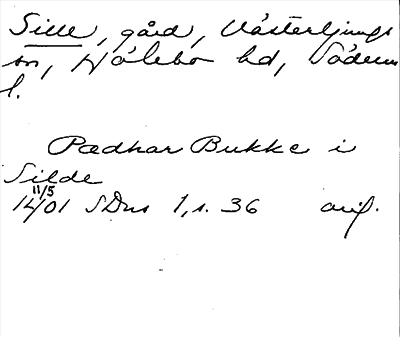 Sille, gård, Västerljungs
sn, Hölebo hd, Söderm
l.
Pædhar Bukke i
Silde
11/5
1401 SDns 1, s. 36 orig.